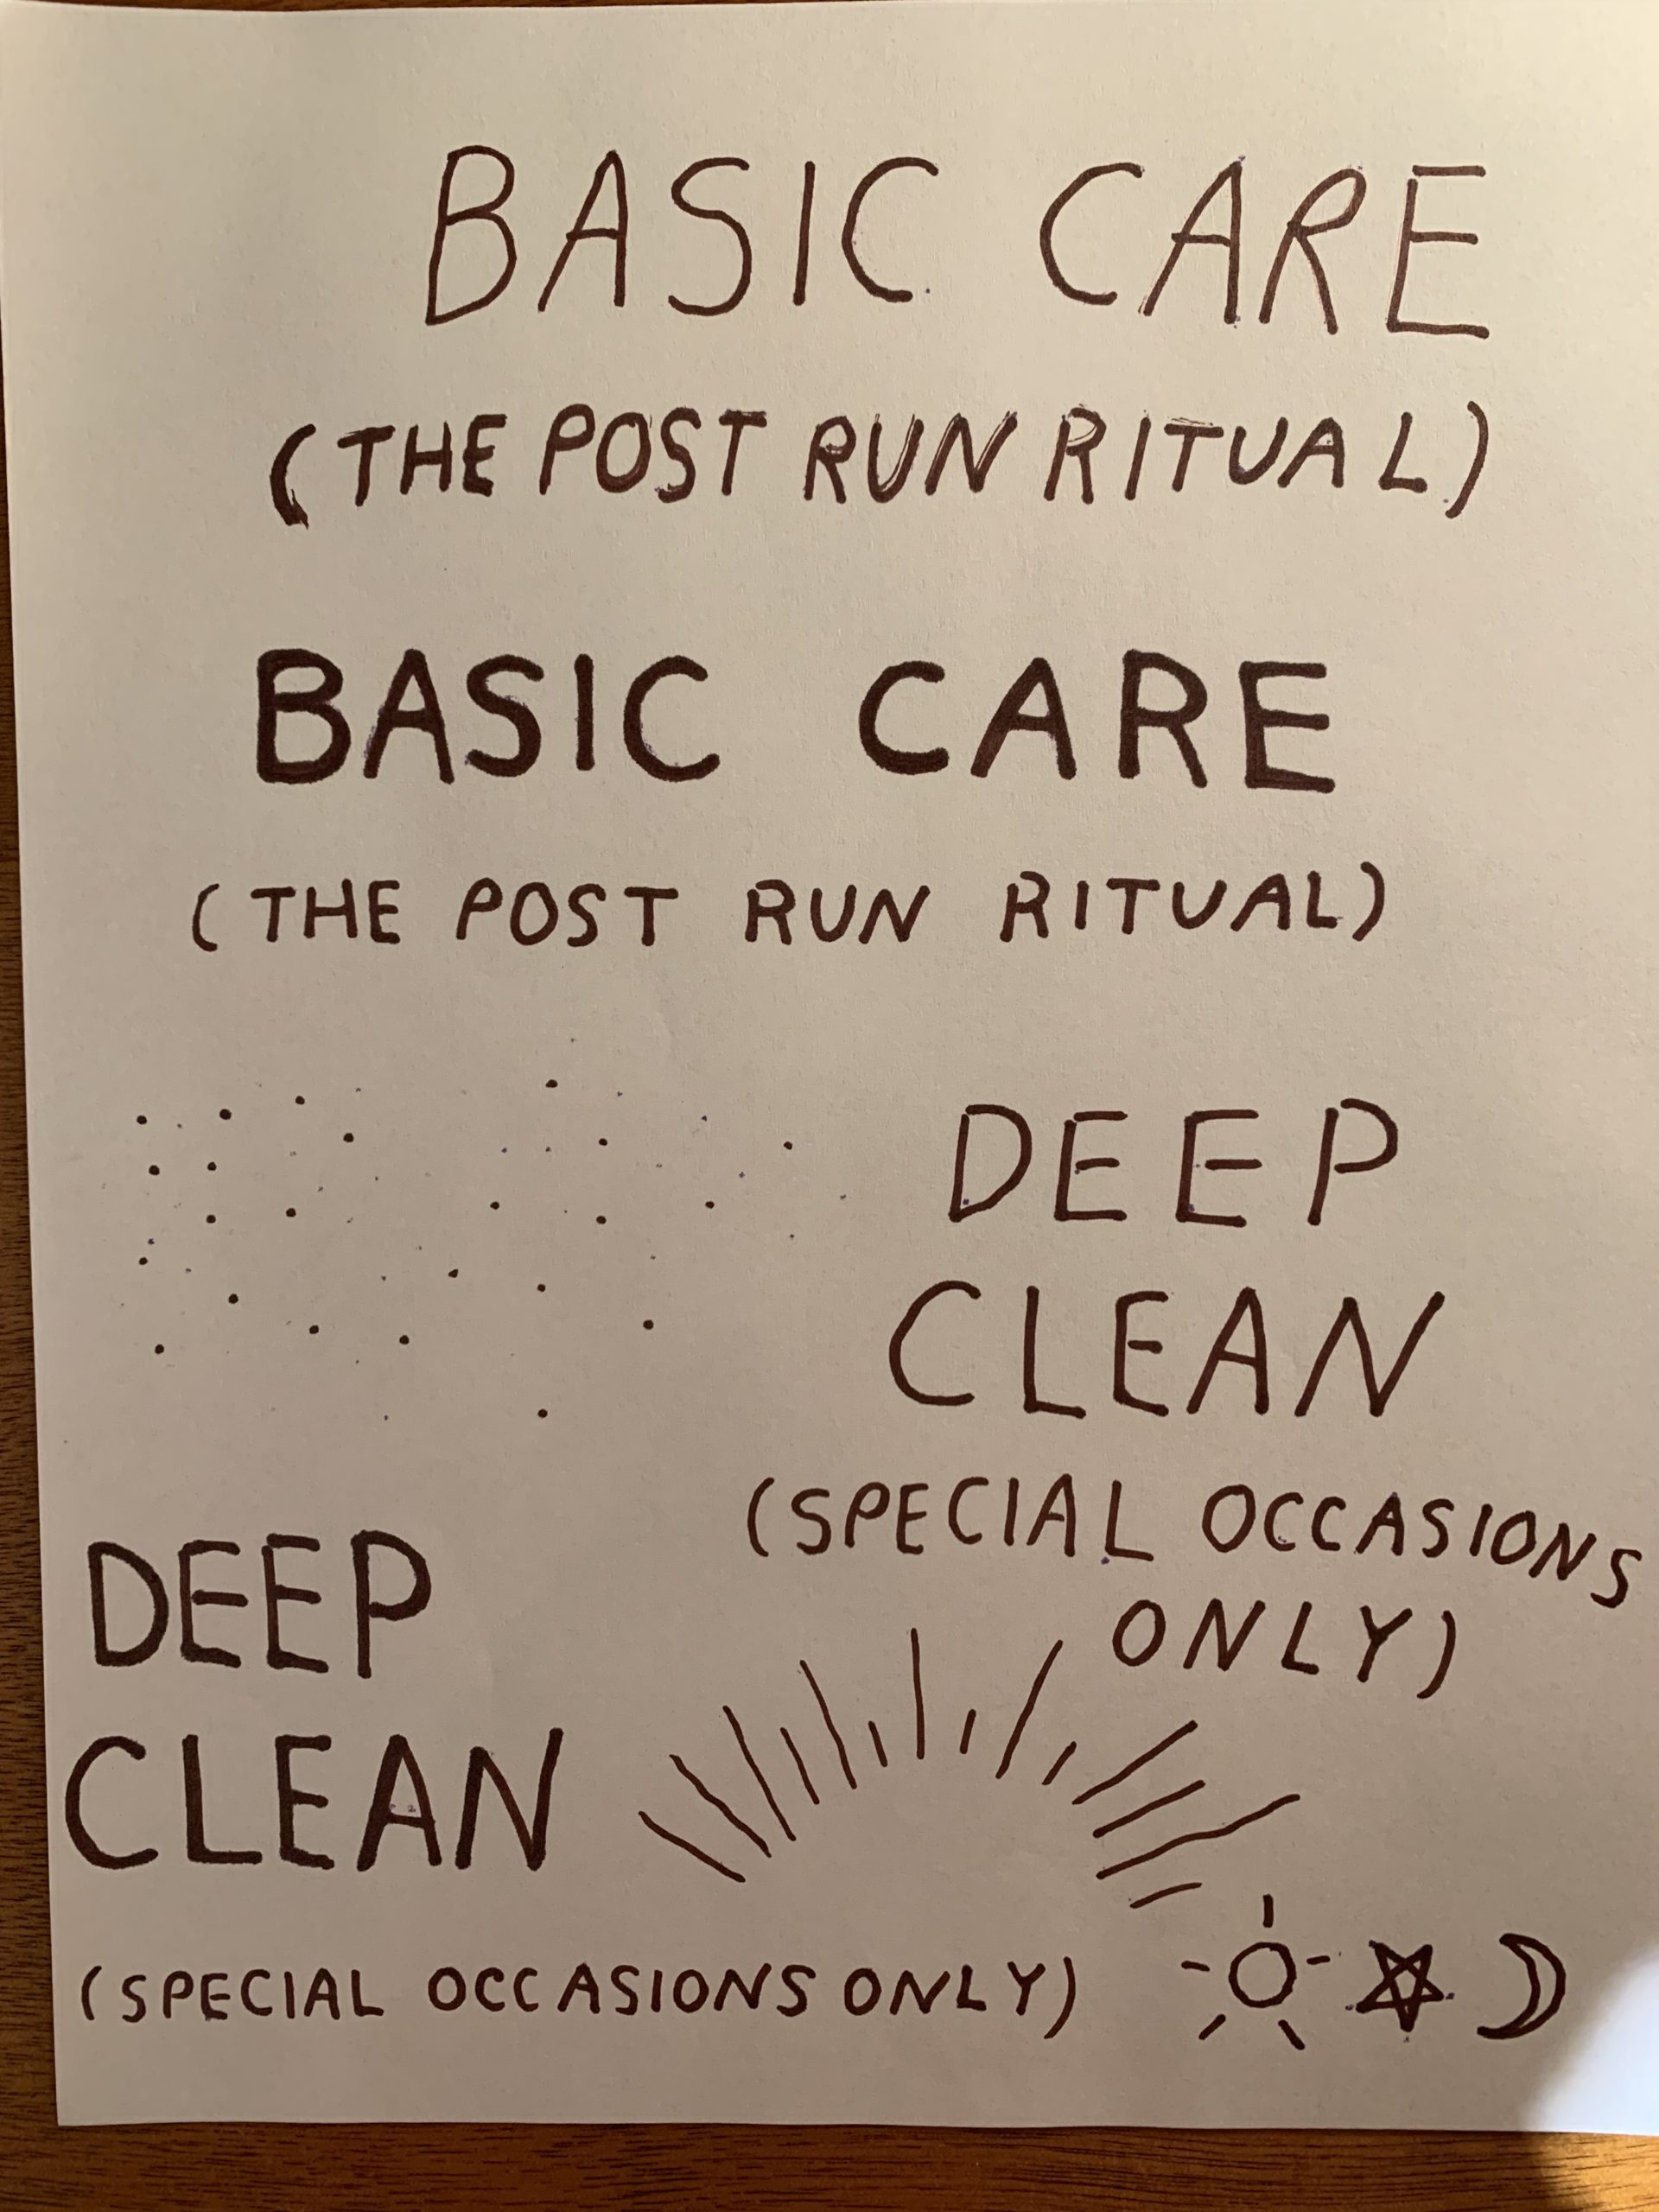 BASIC CARE
(THE POST RUN RITUAL)
BASIC CARE
(THE POST RUN RITUAL)
DEEP
CLEAN
(SPECIAL OCCASIONS
ONLY)
DEEP
CLEAN
(SPECIAL OCCASIONS ONLY)